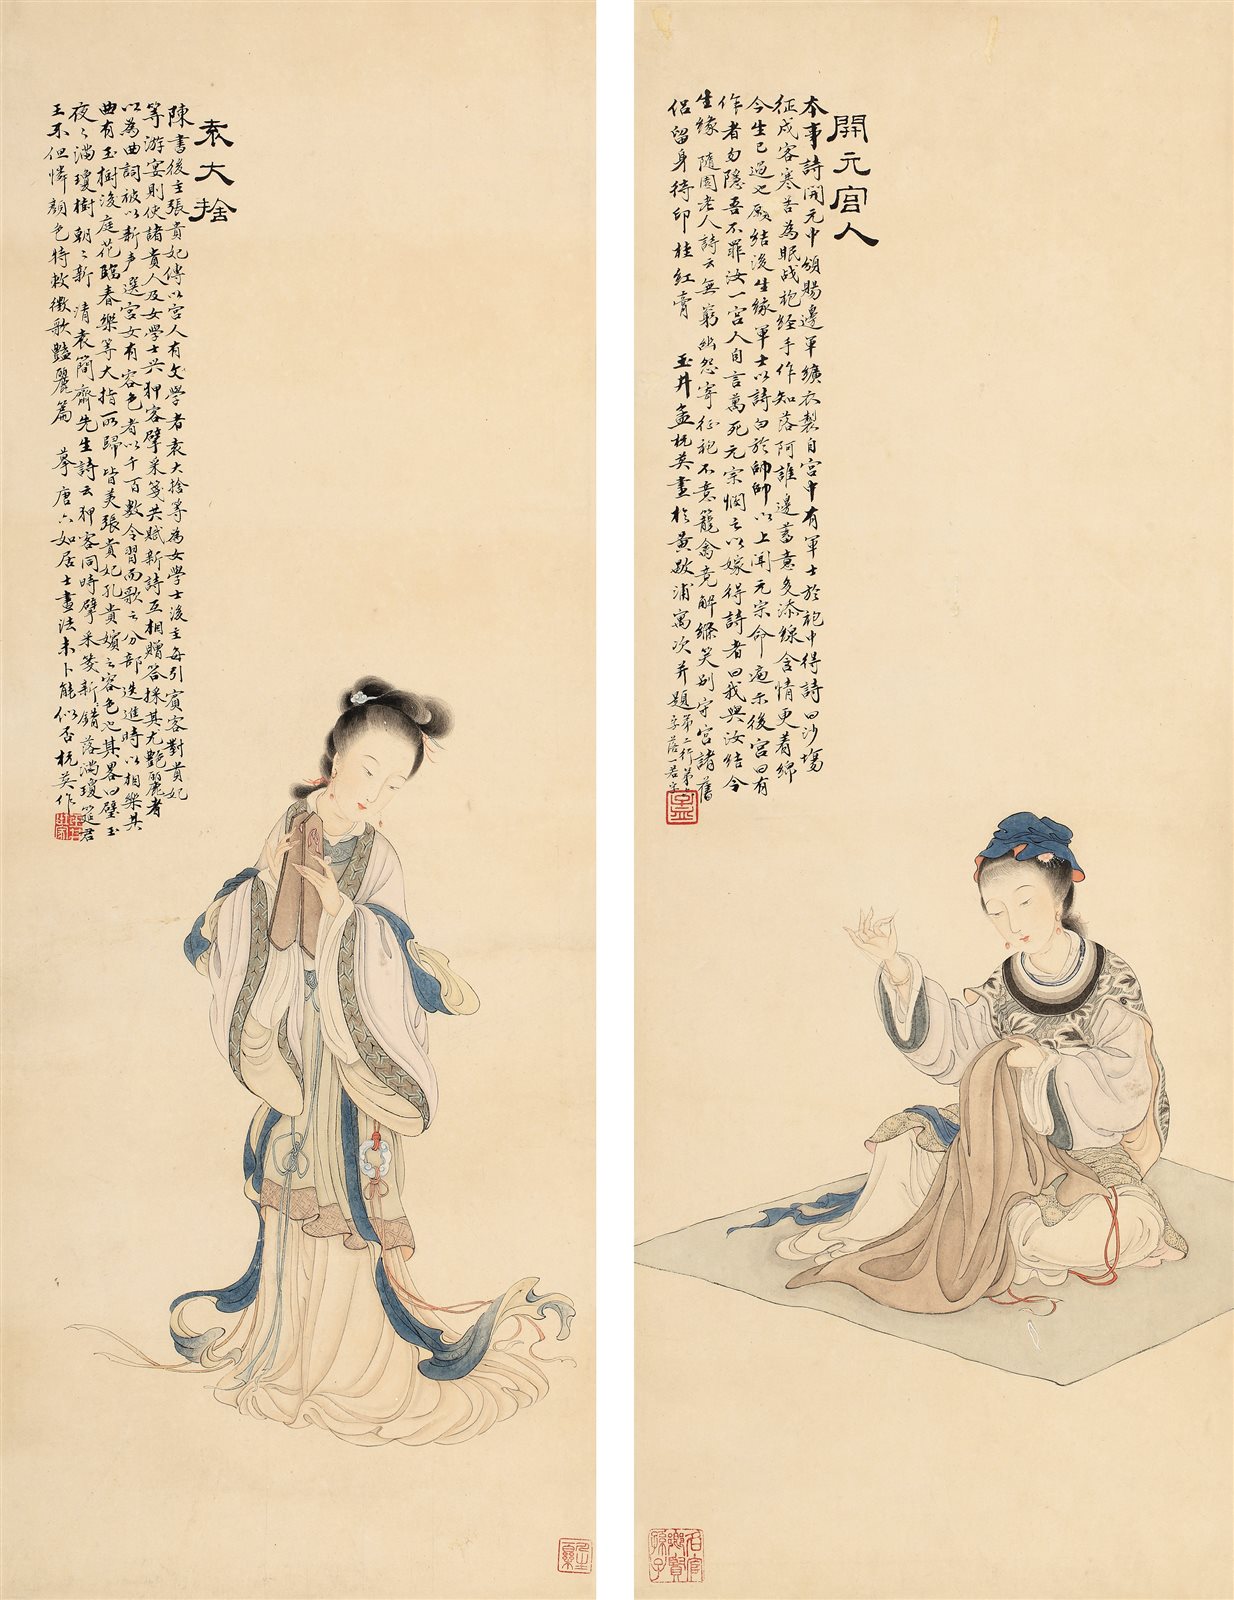 開元宮人
本事詩開元中頒賜邊軍纊衣製自宮中有軍士於袍中得詩曰沙場
征戍客寒苦為眠戰袍經手作知落阿誰邊蓄意多添線含情更着綿
今生已過也願結後生緣軍士以詩白於帥帥以上聞元宗命遍示後宮曰有
作者勿隱吾不罪汝一宮人自言萬死元宗憫之以嫁得詩者曰我與汝結今
生緣 隨園老人詩云無窮幽怨寄征袍不意籠禽竟解絛笑别守宮諸舊
侶留身待印桂紅膏 玉井盦杭英畫於黄歇浦寓次并題
第二行第
字落一君字
袁大捨
陳書後主張貴妃傳以宮人有文學者袁大捨等為女學士後主每引賓客對貴妃
等游宴則使諸貴人及女學士與狎客擘采箋共賦新詩互相贈答採其尤艷麗者
以為曲詞被以新声選宮女有容色者以千百數令習而歌之分部迭進時以相樂其
曲有玉樹後庭花臨春樂等大指所歸皆美張貴妃孔貴嬪之容色也其畧曰璧玉
夜夜滿瓊樹朝朝新 清袁簡齋先生詩云狎客同時擘采箋新錯落滿瓊筵君
王不但憐顔色特敕徵歌豔麗篇 摹唐六如居士畫法未卜能似否杭英作